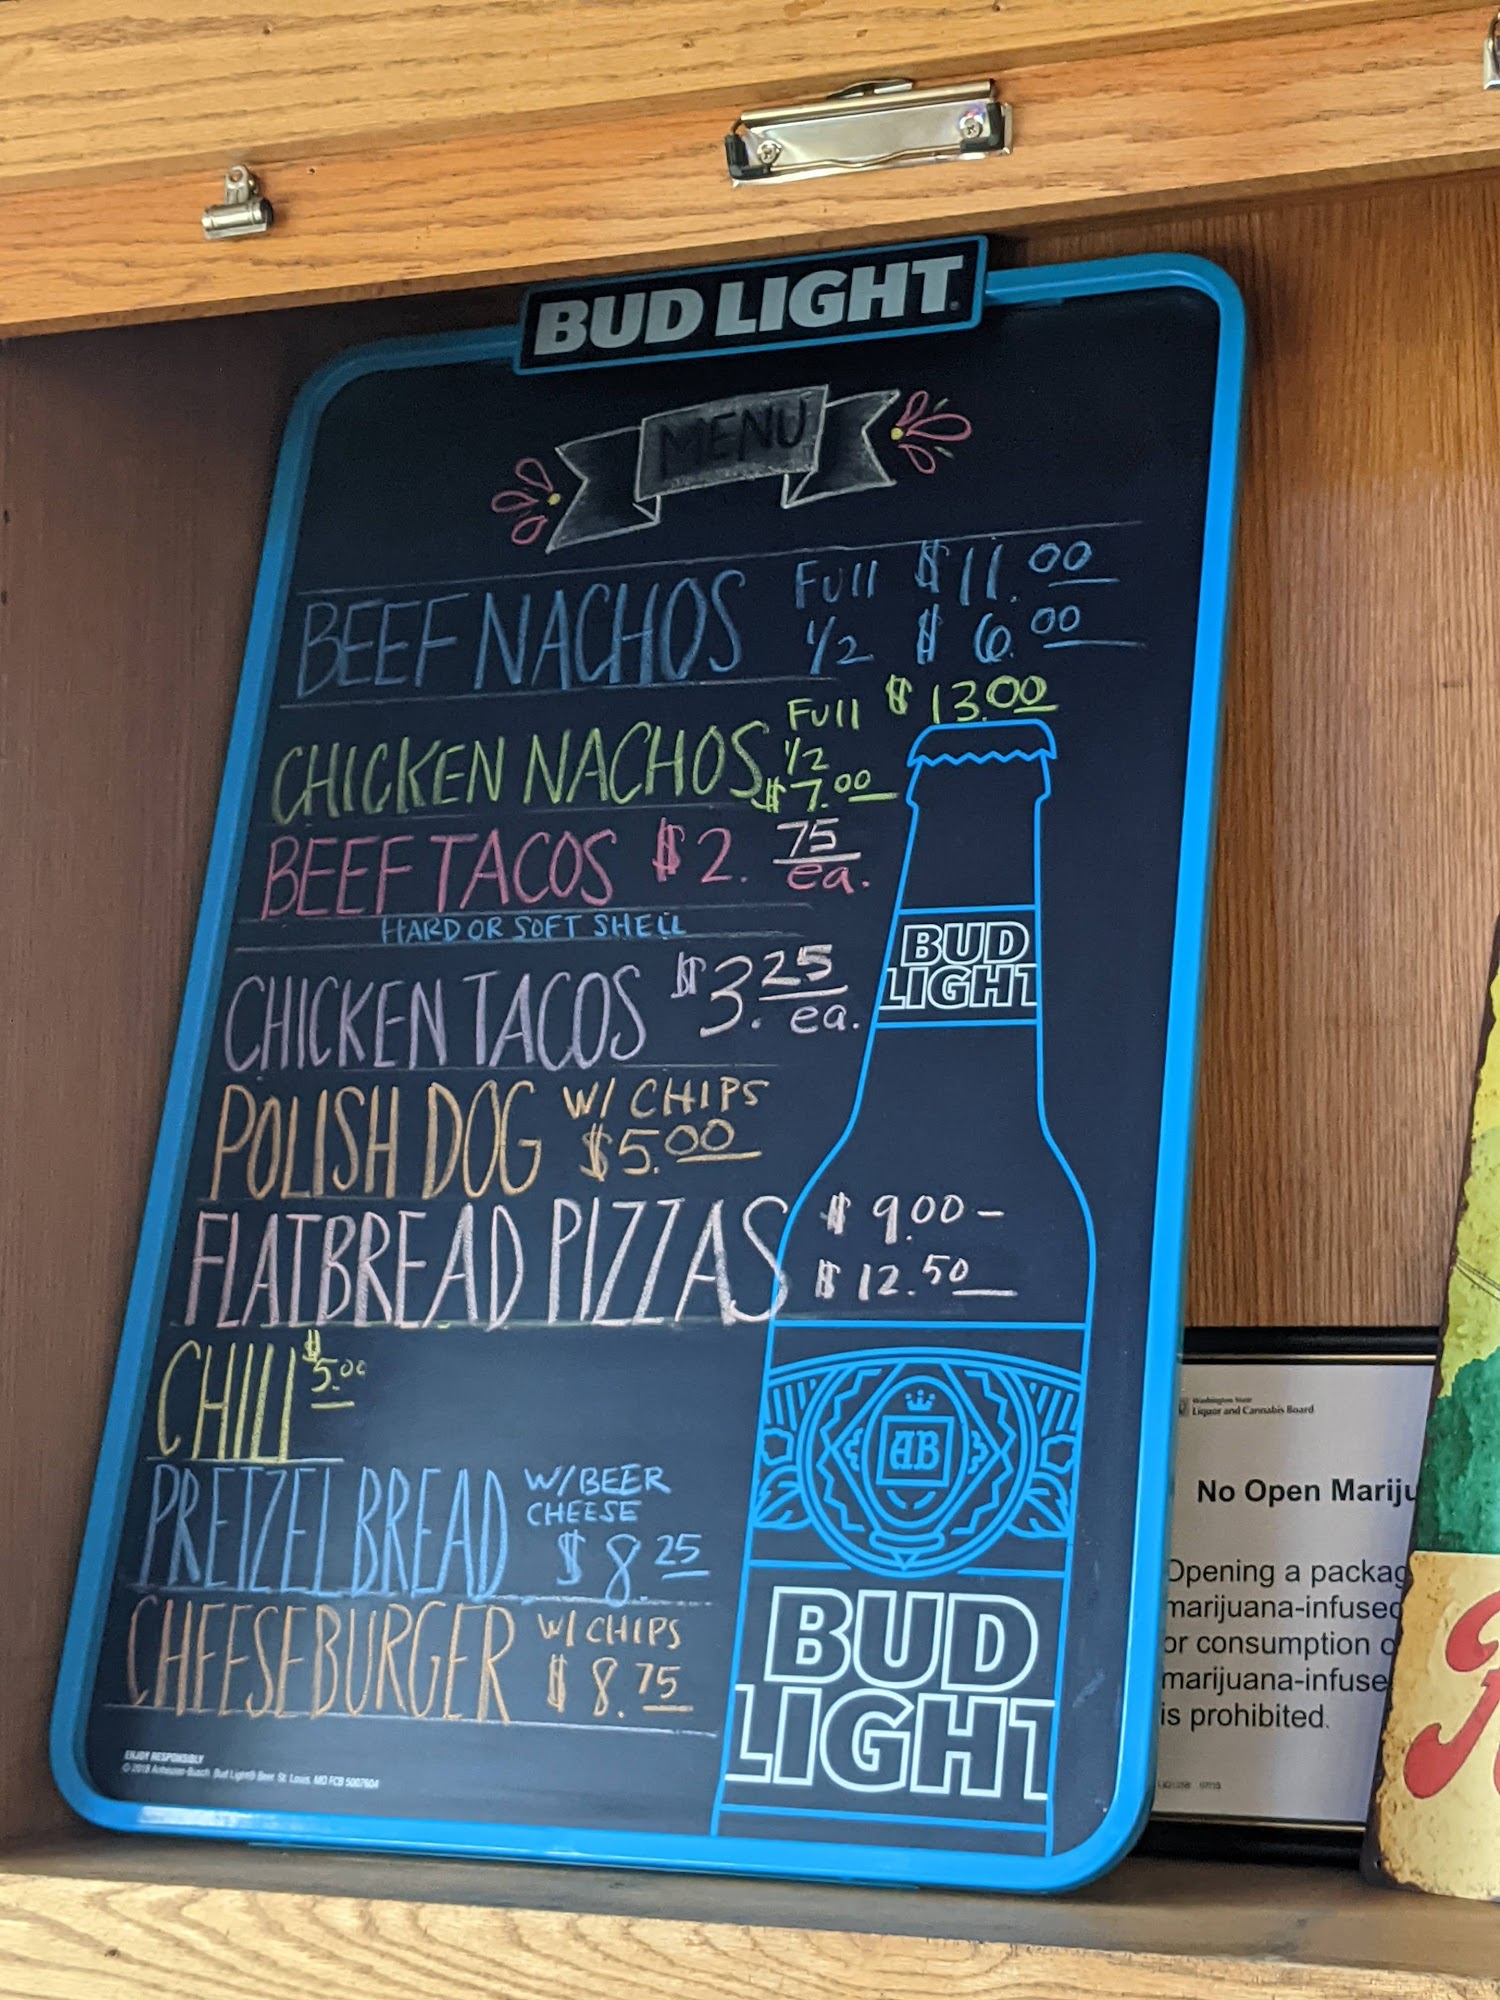 BUD LIGHT
MENU
BEEF NACHOS Full $11.00
1/2 $6.00
CHICKEN NACHOS Full $13.00
1/2
$7.00
BEEF TACOS $2.75 ea.
HARD OR SOFT SHELL
CHICKEN TACOS $3.25 ea.
POLISH DOG W/ CHIPS
$5.00
FLATBREAD PIZZAS $9.00 –
$12.50
CHILI $5.00
PRETZEL BREAD W/BEER
CHEESE
$8.25
CHEESEBURGER W/ CHIPS
$8.75
ENJOY RESPONSIBLY
© 2018 Anheuser-Busch, Bud Light® Beer, St. Louis, MO FCB 5007604
BUD
LIGHT
AB
BUD
LIGHT
Washington State
Liquor and Cannabis Board
No Open Mariju
Opening a packag
marijuana-infused
or consumption o
marijuana-infuse
is prohibited.